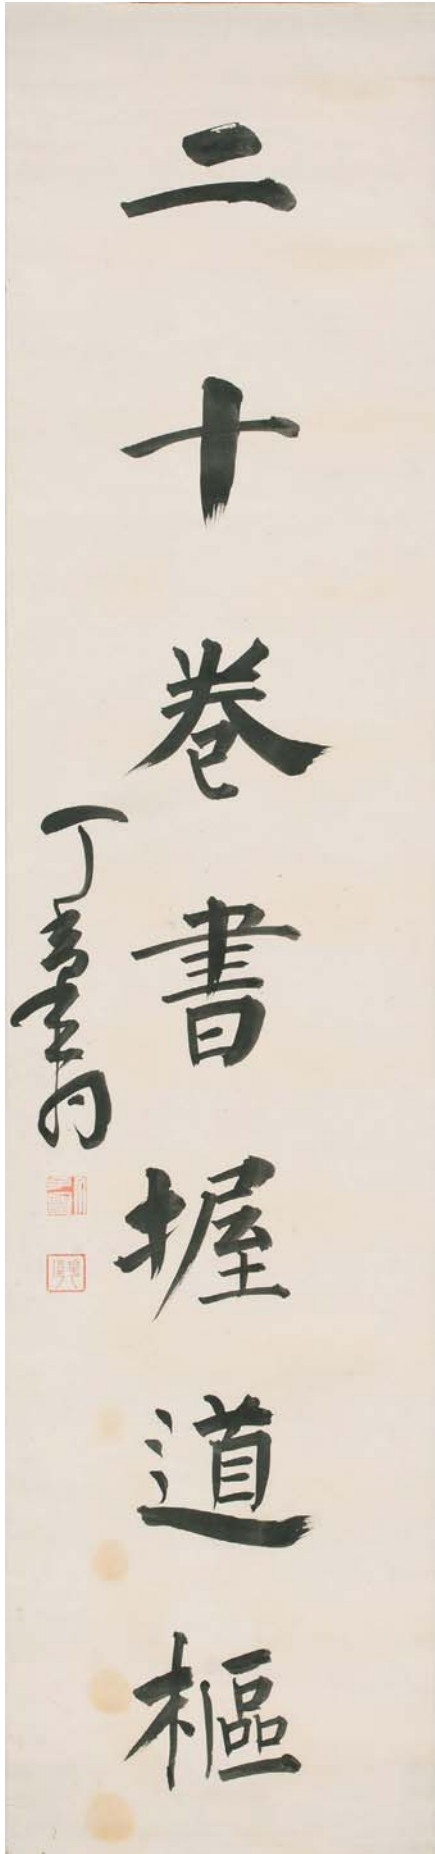 二十卷書握道樞
丁